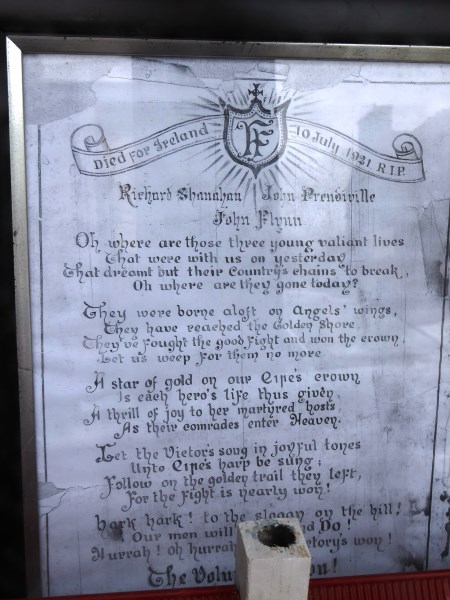 Died for Ireland 10 July 1921 R.I.P.
Richard Shanahan John Prendiville
John Flynn
Oh where are those three young valiant lives
That were with us on yesterday
That dreamt but their Country's chains to break,
Oh where are they gone today?
They were borne aloft on Angels' wings,
They have reached the Golden Shore
They've fought the good fight and won the crown
Let us weep for them no more
A star of gold on our Eire's crown
Is each hero's life thus given
A thrill of joy to her martyred hosts
As their comrades enter Heaven.
Let the Victor's song in joyful tones
Unto Eire's harp be sung;
Follow on the golden trail they left,
For the fight is nearly won!
Hark hark! to the slogan on the hill!
Our men will Do!
Hurrah! oh hurrah won!
The